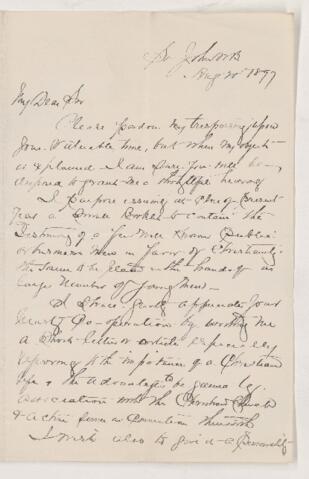 St John NB
Aug 20 1897
My Dear Sir
Please pardon my trespassing upon
your valuable time, but when my object
is explained I am sure you will be
disposed to grant me a
I purpose issuing as
a small Booklet to contain the
Testimony of a few well known Public
or business men in favor of Christianity
the same to be placed in the hands of as
large number of young men
I should greatly appreciate your
co-operation by writing me
a short letter or article especially
referring to the importance of a Christian
life & the advantages to be gained by
association with the Christian Church
& active service in connection therewith
I wish also to give a